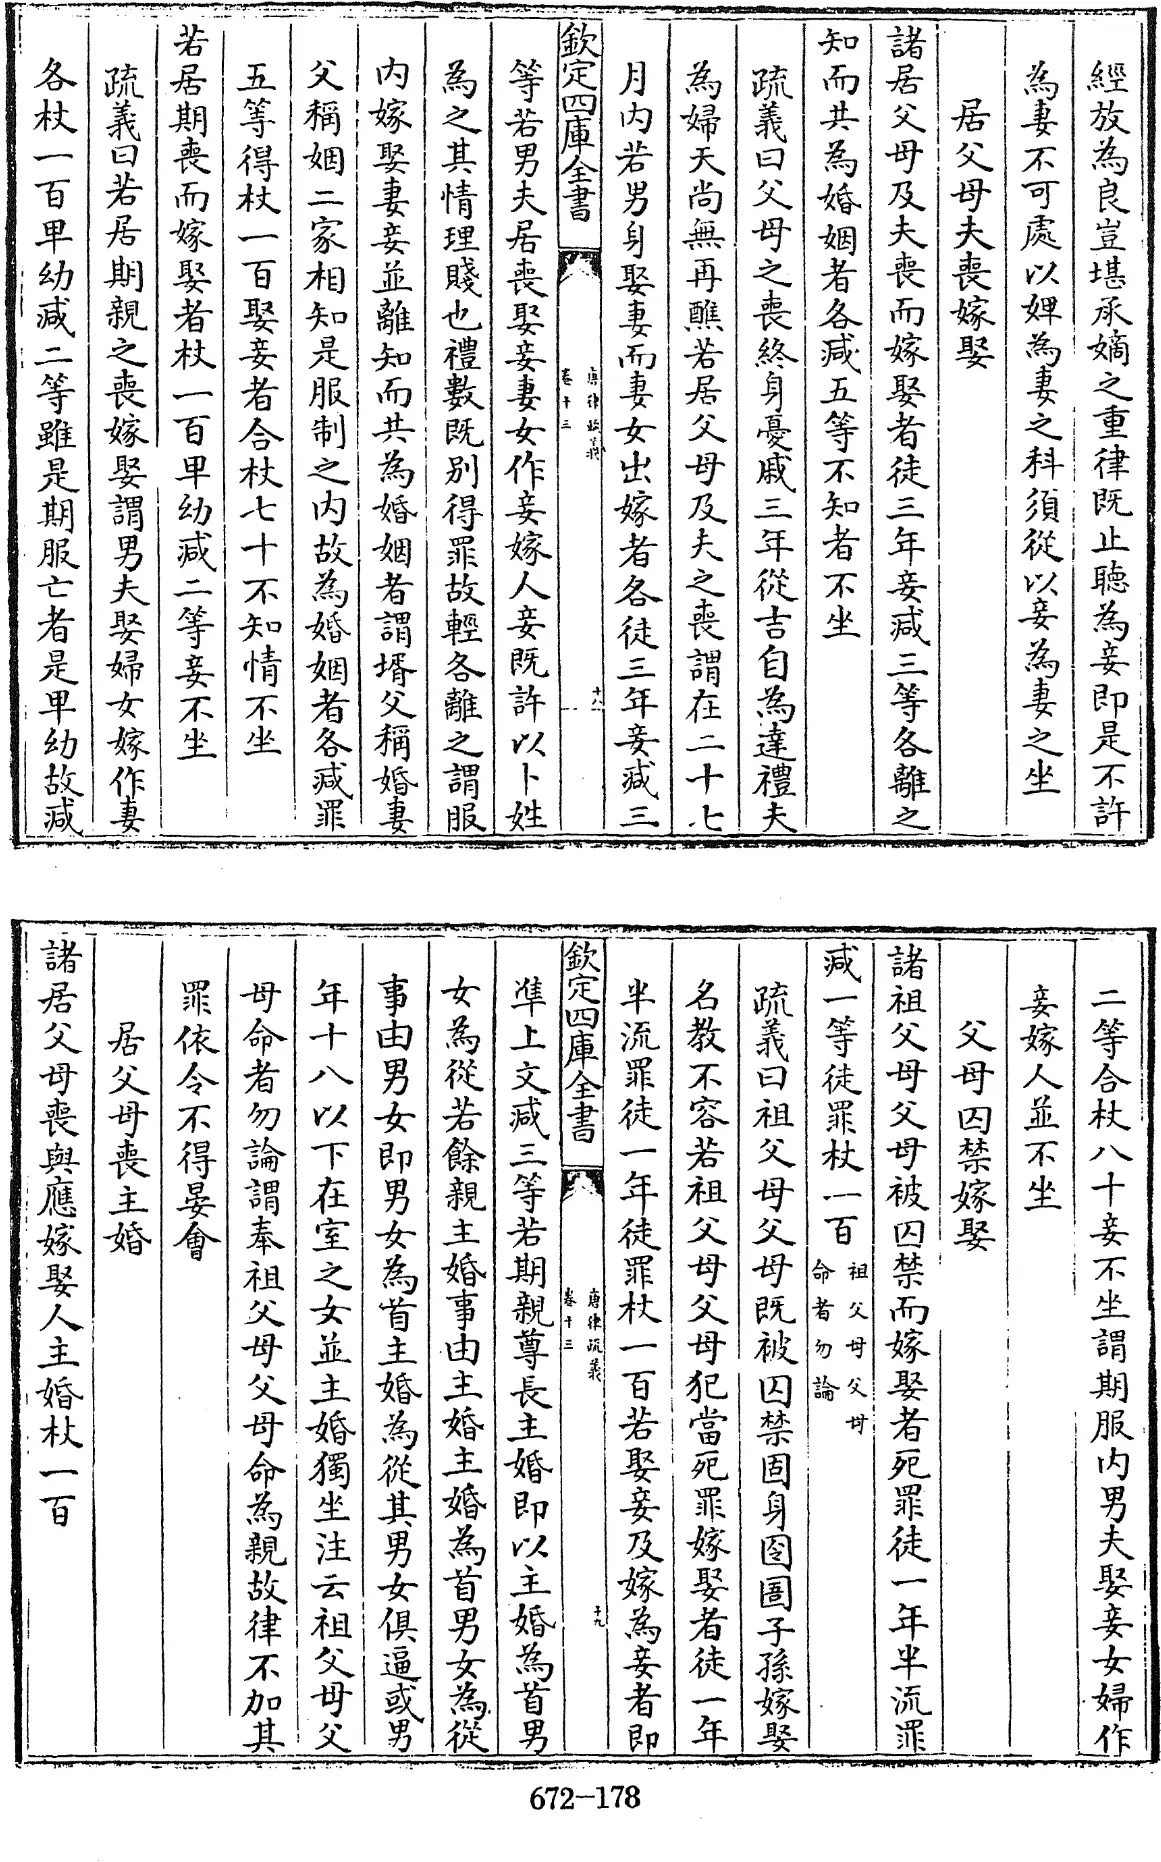 經放為良豈堪承嫡之重律既止聽為妾即是不許
為妻不可處以婢為妻之科須從以妾為妻之坐
居父母夫喪嫁娶
諸居父母及夫喪而嫁娶者徒三年妾减三等各離之
知而共為婚姻者各减五等不知者不坐
疏義曰父母之喪終身憂戚三年從吉自為達禮夫
為婦天尚無再醮若居父母及夫之喪謂在二十七
月内若男身娶妻而妻女出嫁者各徒三年妾减三
欽定四庫全書
唐律疏義
卷十三
十八
等若男夫居喪娶妾妻女作妾嫁人妾既許以卜姓
為之其情理賤也禮數既别得罪故輕各離之謂服
内嫁娶妻妾並離知而共為婚姻者謂壻父稱婚妻
父稱姻二家相知是服制之内故為婚姻者各减罪
五等得杖一百娶妾者合杖七十不知情不坐
若居期喪而嫁娶者杖一百卑幼减二等妾不坐
疏義曰若居期親之喪嫁娶謂男夫娶婦女嫁作妻
各杖一百卑幼减二等雖是期服亡者是卑幼故减
二等合杖八十妾不坐謂期服内男夫娶妾女婦作
妾嫁人並不坐
父母囚禁嫁娶
諸祖父母父母被囚禁而嫁娶者死罪徒一年半流罪
减一等徒罪杖一百
祖父母父母
命者勿論
疏義曰祖父母父母既被囚禁固身囹圄子孫嫁娶
名教不容若祖父母父母犯當死罪嫁娶者徒一年
半流罪徒一年徒罪杖一百若娶妾及嫁為妾者即
欽定四庫全書
唐律疏義
卷十三
十九
準上文减三等若期親尊長主婚即以主婚為首男
女為從若餘親主婚事由主婚主婚為首男女為從
事由男女即男女為首主婚為從其男女俱逼或男
年十八以下在室之女並主婚獨坐注云祖父母父
母命者勿論謂奉祖父母父母命為親故律不加其
罪依令不得宴會
居父母喪主婚
諸居父母喪與應嫁娶人主婚杖一百
672-178